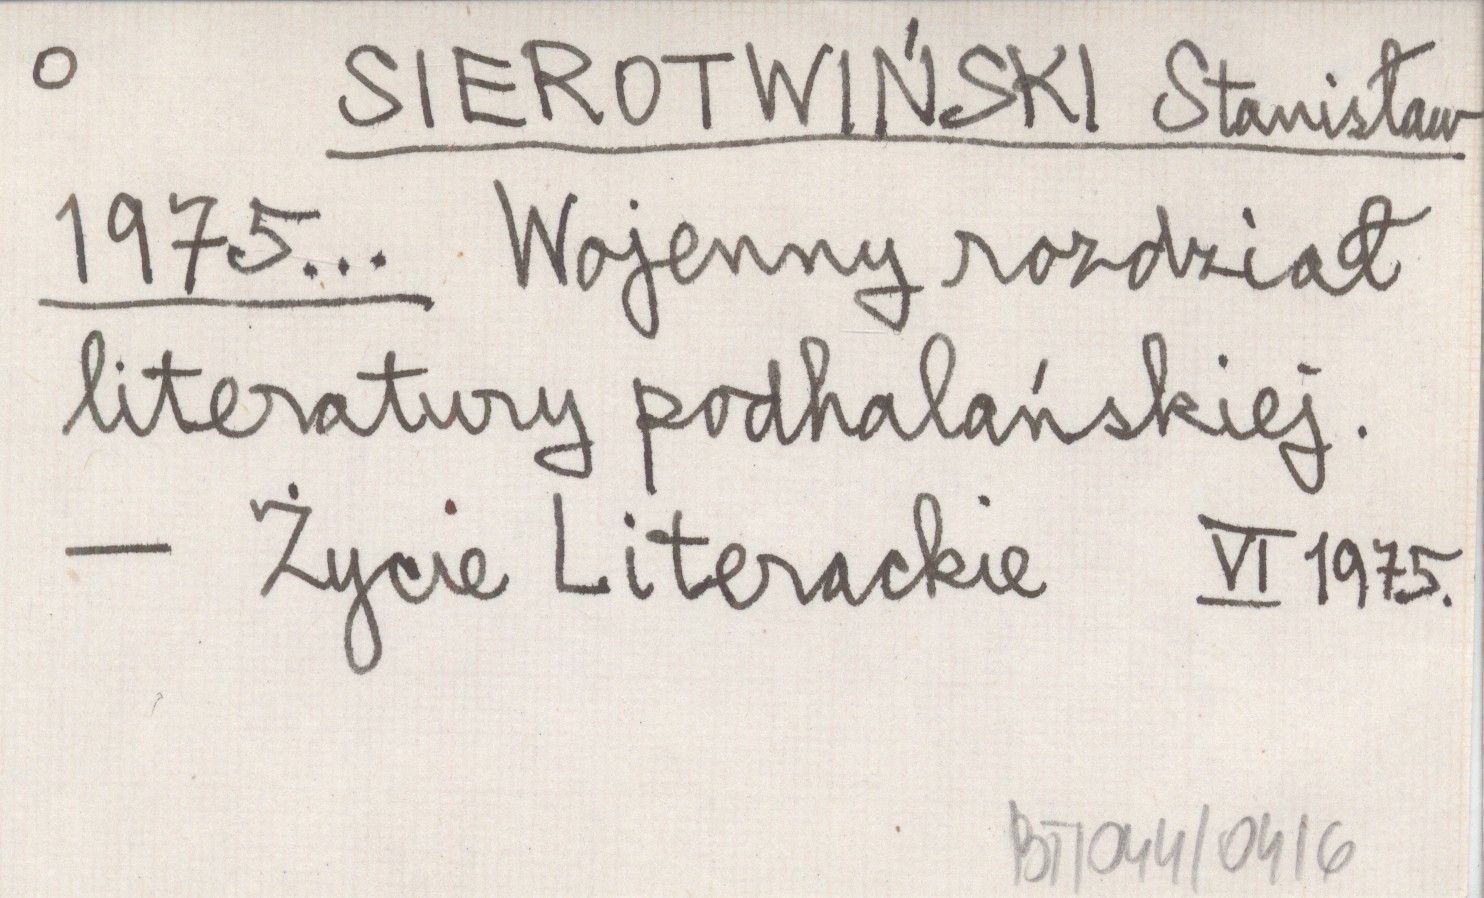 O SIEROTWIŃSKI Stanisław
1975... Wojenny rozdział
literatury podhalańskiej.
— Życie Literackie VI 1975.
BT/044/04/6